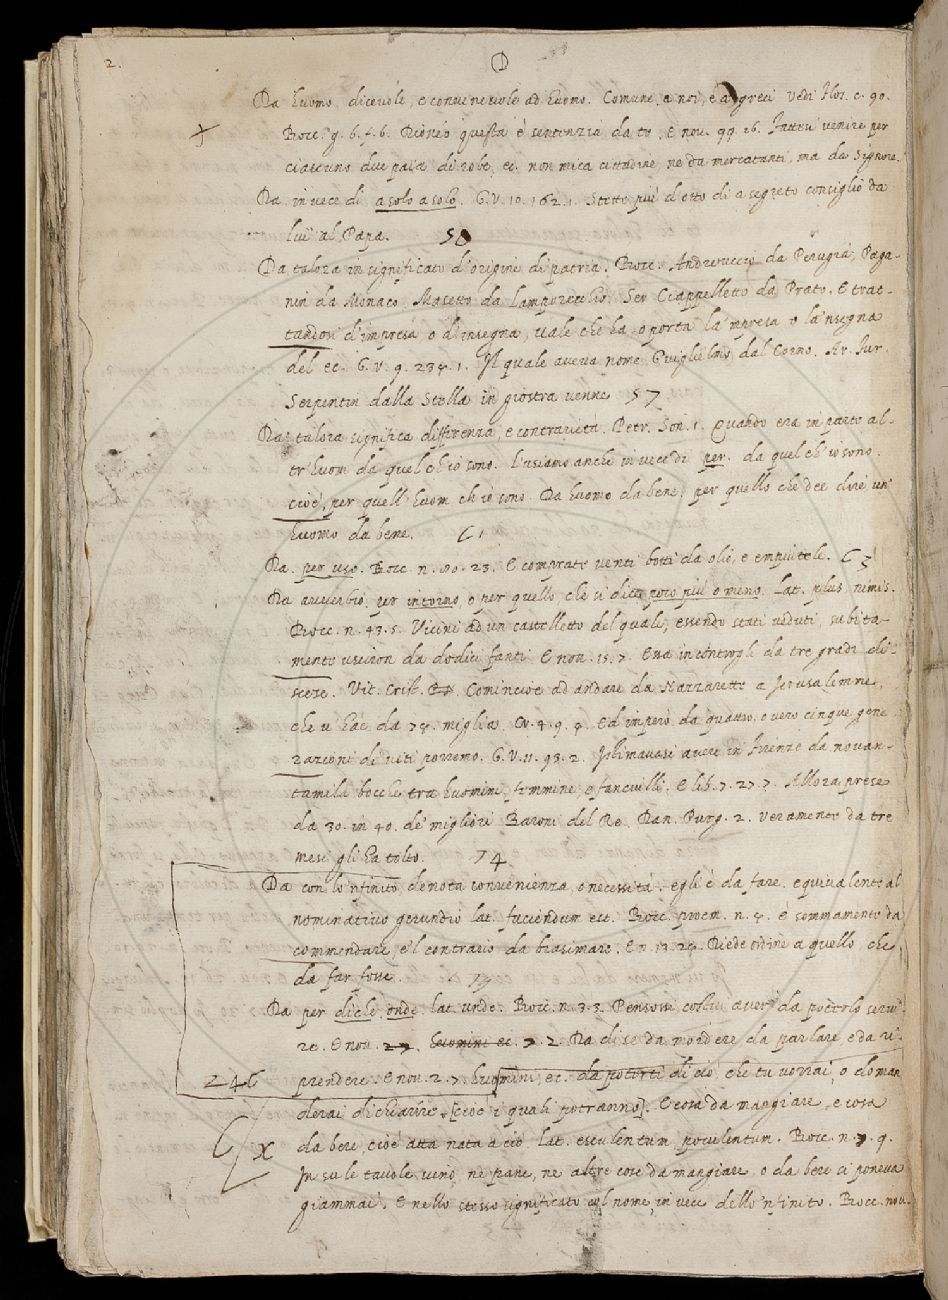 2.
D
Da huomo, dicevole, e convenevole ad huomo. Comune a noi, e a greci vedi Flos. c. 90.
x Bocc. g. 6. f. 6. questa è sentenzia da te. E nov. 99. 26. venire per
ciascuno due paia di robe, ec. non mica cittadine, ne da mercatanti, ma da signore.
Da in vece di a solo a solo. G.V. 10. 162. 1. Stette più d'otto dì a segreto consiglio da
lui al Papa. 50
Da talora in significato d'origine di patria. Bocc. Andreuccio da Perugia, Paga-
nin da Monaco, Masetto da Lamporecchio. Ser Ciappelletto da Prato. E trat-
tandosi d'impresa o d'insegna, vale che ha, o porta la 'mpresa o la 'nsegna
del ec. G.V. 9. 234. 1. Il quale aveva nome Guiglielmo dal Corno. Ar. Fur.
Serpentin dalla Stella in giostra venne 57
Da talora significa differenza, e contrarietà. Petr. Son. 1. Quando era in parte al-
tr'huom da quel ch'io sono. L'usiamo anche in vece di per. da quel ch'io sono.
cioè, per quell'huom ch'io sono. Da huomo da bene, per quello che dee dire un
huomo da bene. 61
Da. per uso. Bocc. n. 80. 23. E comprate venti botti da olio, e empiutele. 63
Da avverbio, per intorno, o per quello che si dice poco più o meno. Lat. plus minus.
Bocc. n. 43. 5. Vicini ad un castelletto del quale, essendo stati veduti, subita-
mente uscirono da dodici fanti E nov. 15. 7. Era incontrogli da tre gradi di-
scese. Vit. Crist. Cominciò ad andare da Nazzarette a Jerusalemme,
che v'hae da 74. miglia. Cr. 4. 9. 4. Ed imperò da quattro, overo cinque gene-
razioni di viti porremo. G.V. 11. 93. 2. Istimavasi avere in Firenze da novan-
tamila bocche tra huomini, femmine, e fanciulli. E lib. 7. 27. 7. Allora prese
da 30. in 40. de' migliori Baroni del Re. Dan. Purg. 2. Veramente da tre
mesi gli ha tolto. 74
Da con lo 'nfinito, denota convenienza, o necessità. egli è da fare, equivalente al
nominativo gerundio lat. faciendum est. Bocc. proem. n. 4. è sommamente da
commendare, e'l contrario da biasimare. E n. 13. 24. Diede ordine a quello che
da far fosse. 79
Da per di che, onde. lat. unde. Bocc. n. 33. Pensossi costui aver da poterlo servi-
re. E nov. 27. huomini ec. 7. 2. Da di se da mordere da parlare e da ri-
246 prendere. E nov. 27. huomini, ec. da poterti di ciò, che tu vorrai, o doman
derai dichiarire. [cioè i quali potranno]. E cosa da mangiare, e cosa
x da bere, cioè atta nata a ciò. Lat. esculentum, poculentum. Bocc. n. 7. 9.
In su le tavole vino, ne pane, ne altre cose da mangiare, o da bere ci poneva
giammai. E nello stesso significato col nome, in vece dello 'nfinito. Bocc. nov.